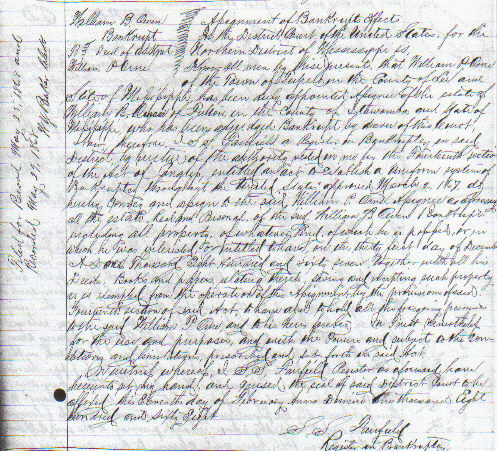 William B Owen Assignment of Bankrupt Effects
Bankrupt In the District Court of the United States, for the
Northern District of Mississippi ss
William P Know all men by these presents, that William P
of the Town of Tupelo in the County of Lee and
State of Mississippi has been duly appointed Assignee of the estate of
William B of Fulton in the County of Itawamba and State of
Mississippi, who has been adjudged Bankrupt by decree of this Court.
Now therefore, I a Register in Bankruptcy in said
District, by virtue of the authority vested in me by the Fourteenth section
of the Act of Congress, entitled an act to establish a Uniform system of
Bankruptcy throughout the United States approved March 2 1867, do
hereby Convey and assign to the said William P Assignee as aforesaid
all the estate, Real and Personal of the said William B Owen Bankrupt
including all property, of whatever kind, of which he is possessed, or in
which he was interested or entitled to have, on the thirty first day, of December
A.D. One Thousand Eight Hundred and Sixty seven together with all his
Deeds, Books and papers relating thereto, saving and excepting such property
as is exempted from the operation of this Assignment by the provisions of said
Fourteenth section of said Act, to have and to hold all the foregoing premises
to the said William P and to his heirs forever, In Trust Nevertheless
for the use and purposes, and with the Powers and subject to the con-
ditions and limitations, prescribed and set forth in said Act.
In Witness whereof, I Register as aforesaid have
hereunto set my hand, and caused the seal of said District Court to be
affixed this day of February Anno Domini One thousand Eight
hundred and Sixty Eight
Register in Bankruptcy
Filed for Record May 25, 1868 and
Recorded May 29, 1868
Clerk